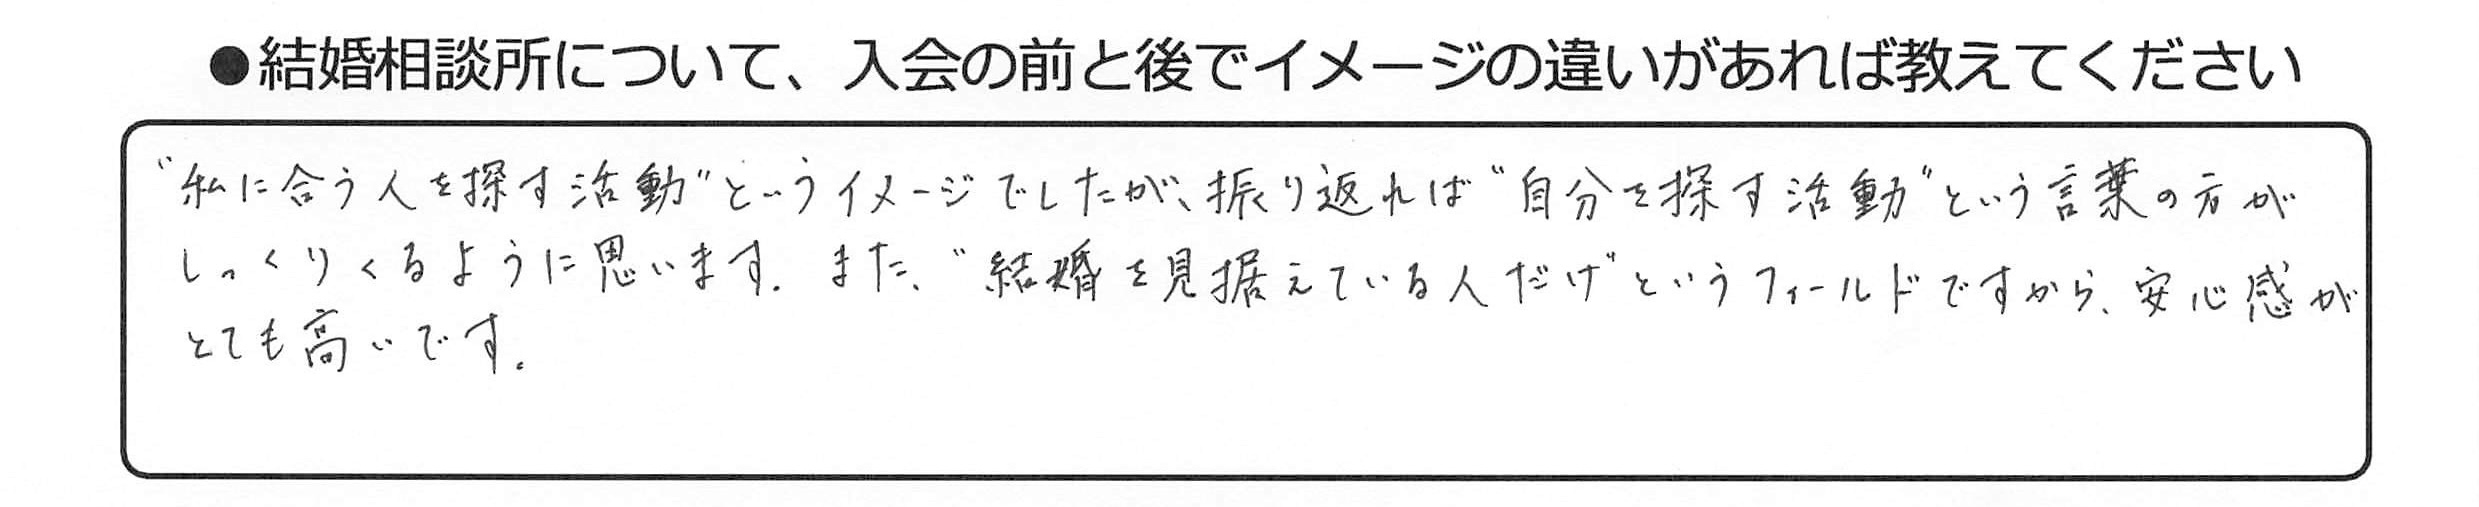 ●結婚相談所について、入会の前と後でイメージの違いがあれば教えてください
“私に合う人を探す活動”というイメージでしたが、振り返れば“自分を探す活動”という言葉の方が
しっくりくるように思います。また、“結婚を見据えている人だけ”というフィールドですから、安心感が
とても高いです。